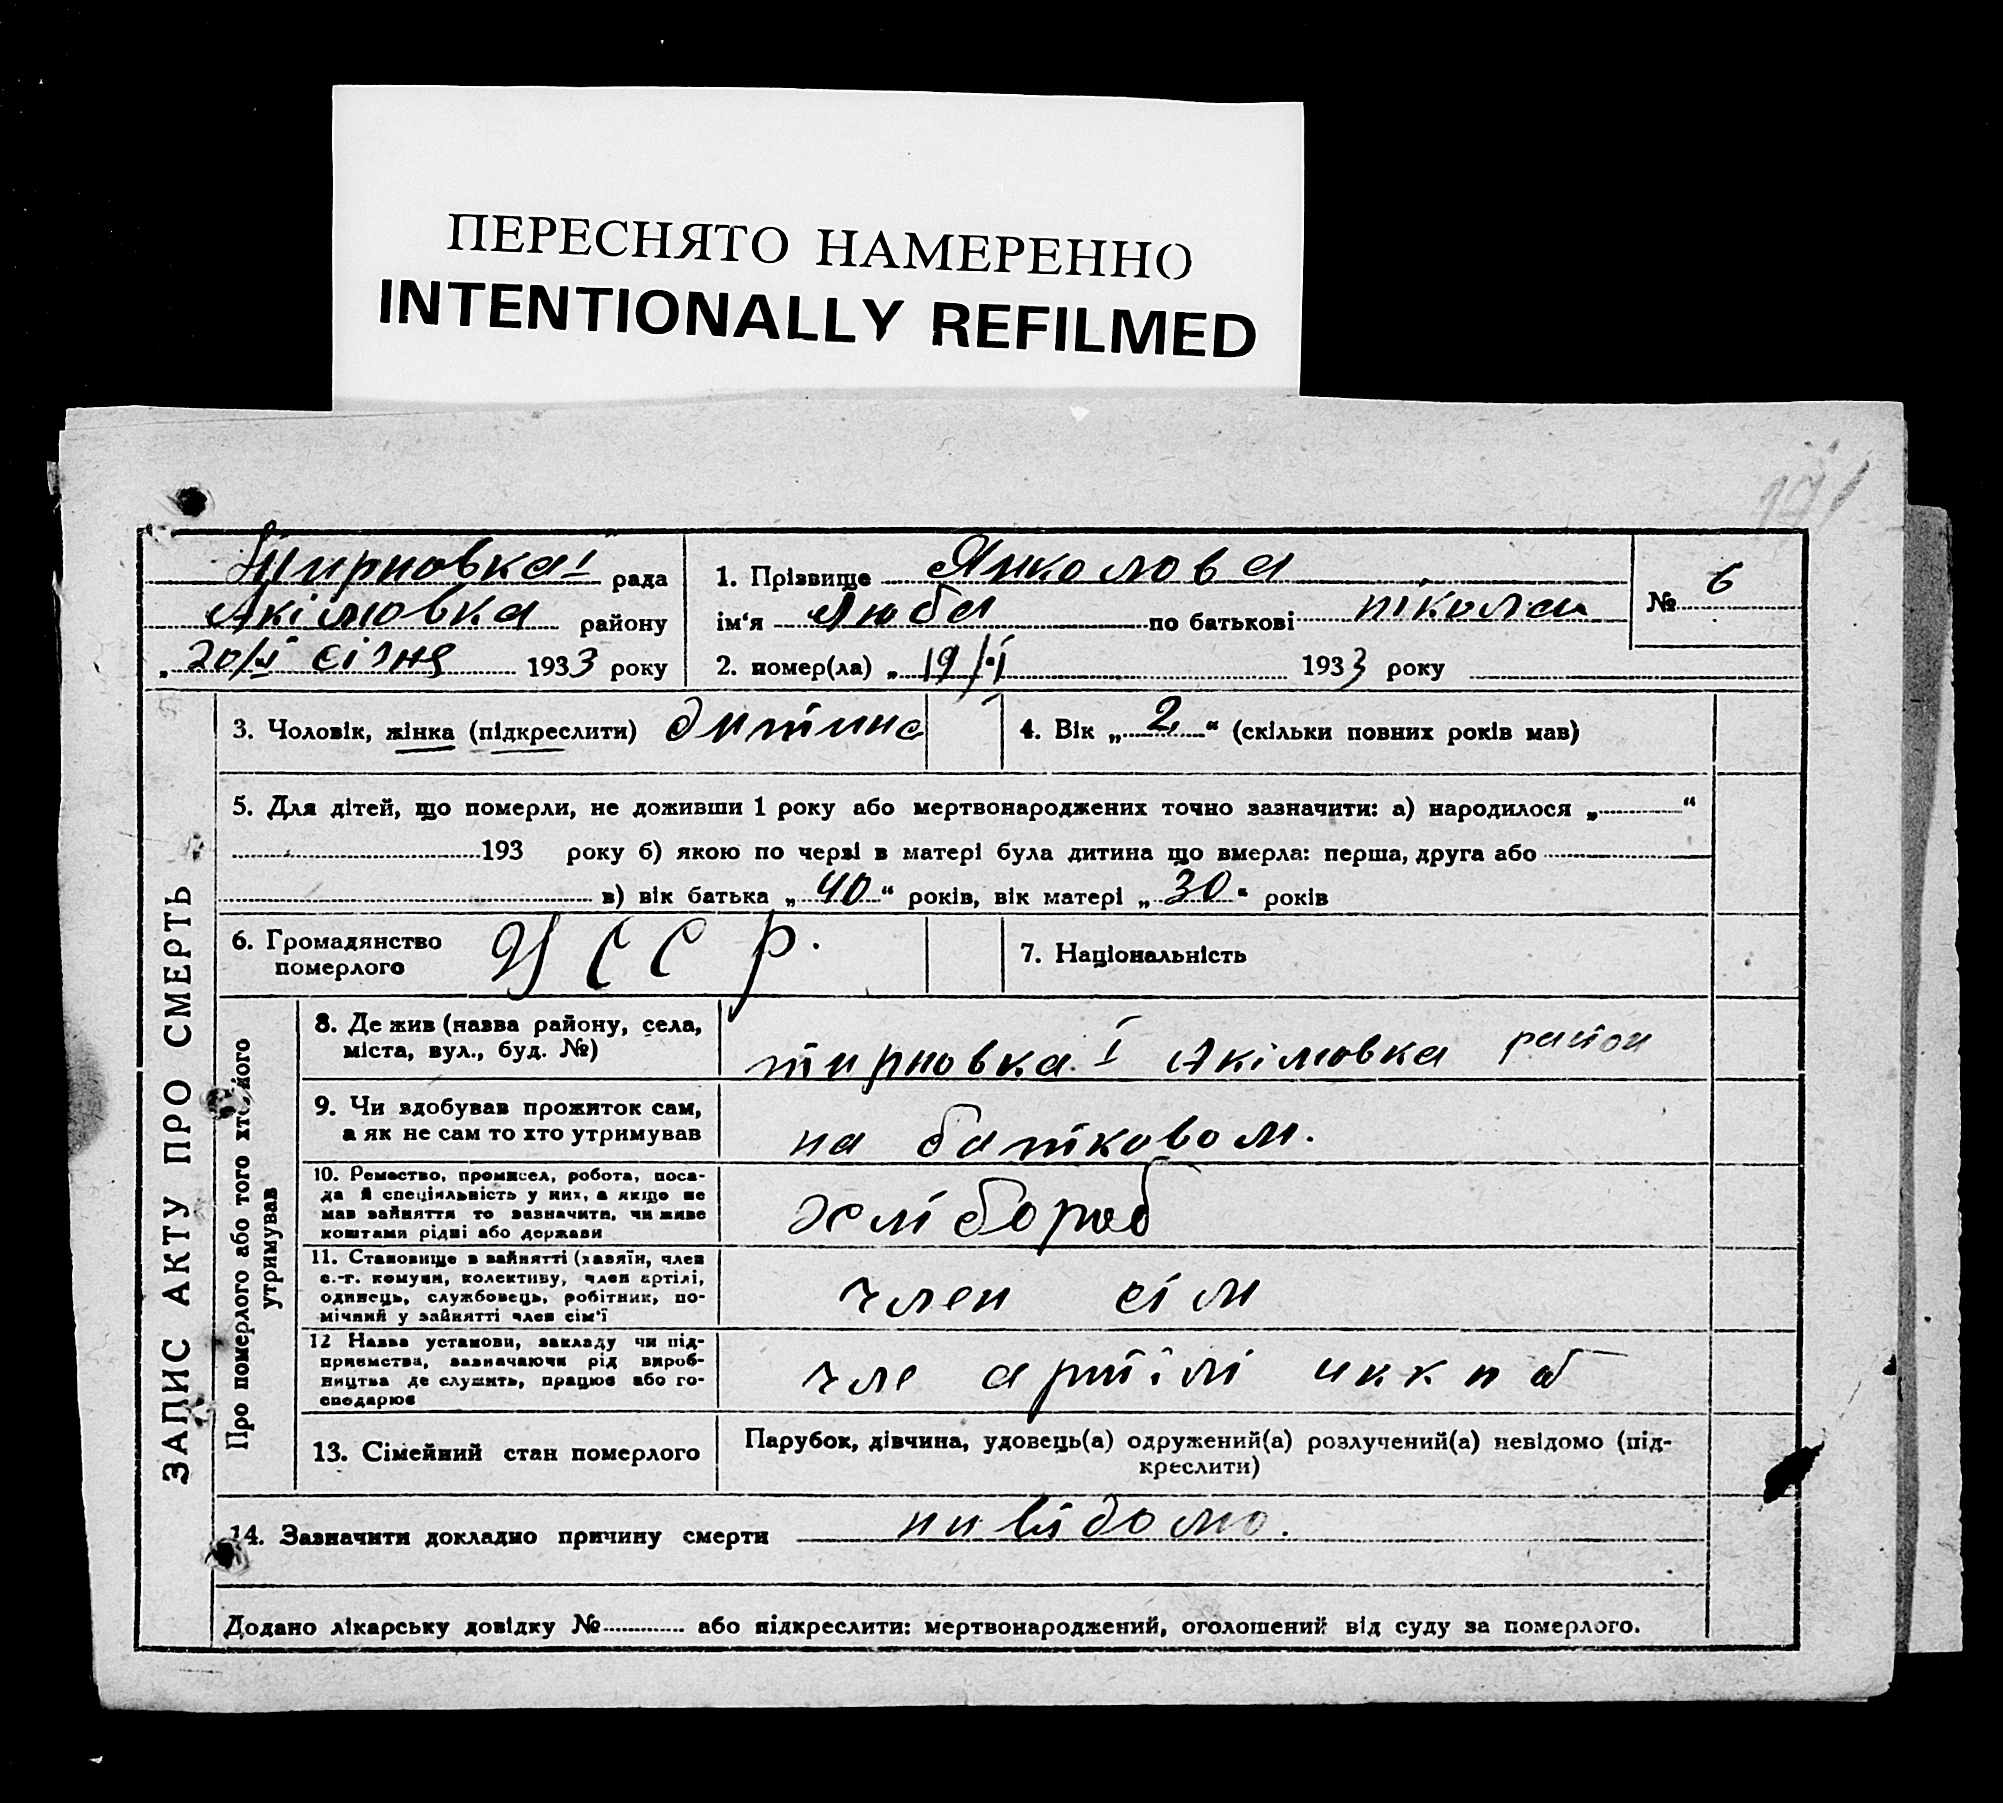 ПЕРЕСНЯТО НАМЕРЕННО
INTENTIONALLY REFILMED
Тирновка I рада
Акімовка району
„20/I січня 1933 року
1. Прізвище Янколова
ім‘я Люба по батькові ніколаи
2. помер(ла) „19/I 1933 року
№ 6
3. Чоловік, жінка (підкреслити) дитина
4. Вік „2“ (скільки повних років мав)
5. Для дітей, що померли, не доживши 1 року або мертвонароджених точно зазначити: а) народилося „ “
193 року б) якою по черзі в матері була дитина що вмерла: перша, друга або
в) вік батька „40“ років, вік матері „30“ років
6. Громадянство
померлого
УССР.
7. Національність
ЗАПИС АКТУ ПРО СМЕРТЬ
Про померлого або того хто його
утримував
8. Де жив (назва району, села,
міста, вул., буд. №)
тирновка I Акімовка район
9. Чи здобував прожиток сам,
а як не сам то хто утримував
на батковом.
10. Ремество, промисел, робота, поса-
да й спеціяльність у них, а якщо не
мав зайняття то зазначити, чи живе
коштами рідні або держави
хлібороб
11. Становище в зайнятті (хазяїн, член
с.-г. комуни, колективу, член артілі,
одинець, службовець, робітник, по-
мічний у зайнятті член сім‘ї
член сім
12 Назва установи, закладу чи під-
приємства, зазначаючи рід вироб-
ництва де служить, працює або го-
сподарює
чле артілі
13. Сімейний стан померлого
Парубок, дівчина, удовець(а) одружений(а) розлучений(а) невідомо (під-
креслити)
14. Зазначити докладно причину смерти нивідомо.
Додано лікарську довідку № або підкреслити: мертвонароджений, оголошений від суду за померлого.